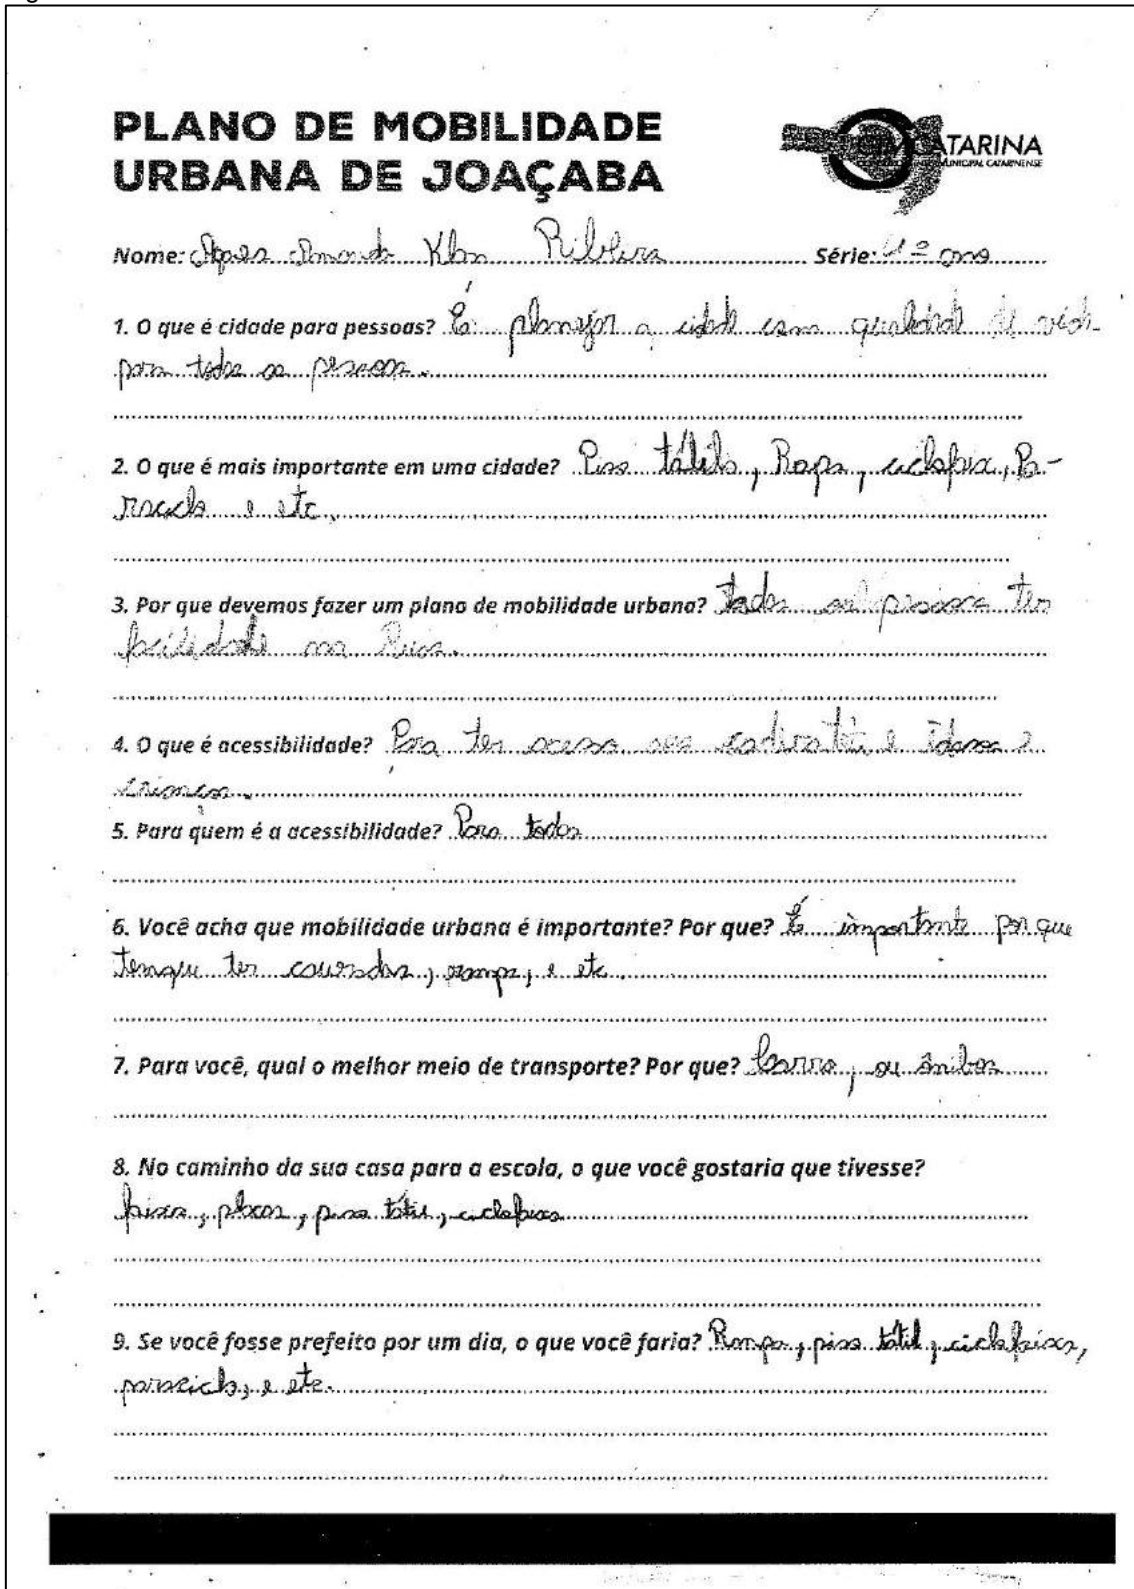 PLANO DE MOBILIDADE
URBANA DE JOAÇABA
CATARINA
Nome: Ribeiro Série: 4º ano
1. O que é cidade para pessoas? É planejar a cidade com qualidade de vida
para todas as pessoas.
2. O que é mais importante em uma cidade? Piso Rapa, ciclofaixa, Pa-
raciclo e etc.
3. Por que devemos fazer um plano de mobilidade urbana? todas pessoas ter
facilidade na Ruas.
4. O que é acessibilidade? Para ter acesso e
crianças.
5. Para quem é a acessibilidade? Para todos
6. Você acha que mobilidade urbana é importante? Por que? É importante por que
temque ter rampa, e etc.
7. Para você, qual o melhor meio de transporte? Por que? Carro, ou ônibos
8. No caminho da sua casa para a escola, o que você gostaria que tivesse?
faixa, placas, piso ciclofaixa
9. Se você fosse prefeito por um dia, o que você faria? Rampa, piso tátil, ciclofaixa,
paraciclo, e etc.